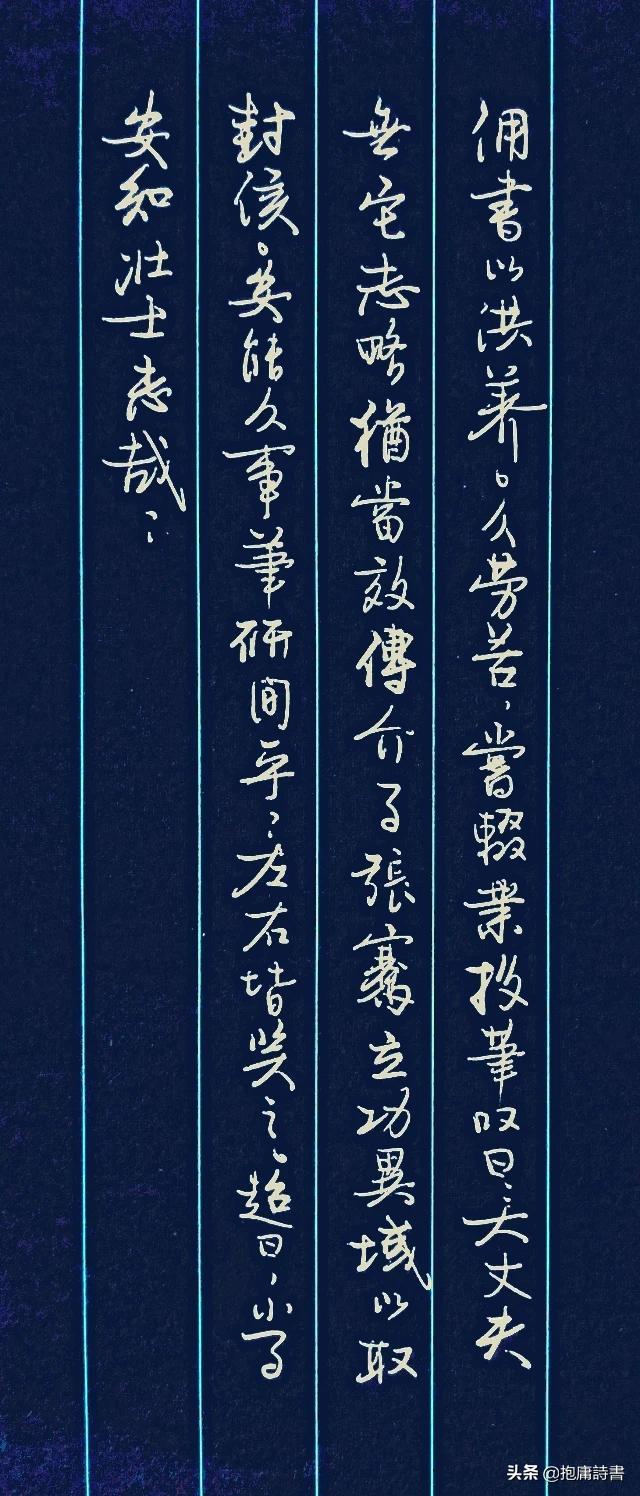 佣書以洪養。久勞苦，嘗輟業投筆叹曰：大丈夫
無它志略猶當效傳介子張騫立功異域以取
對侯。安能久事筆研间乎：左右皆笑之。超曰，小子
安知壯士志哉：
头条 @抱庸詩書